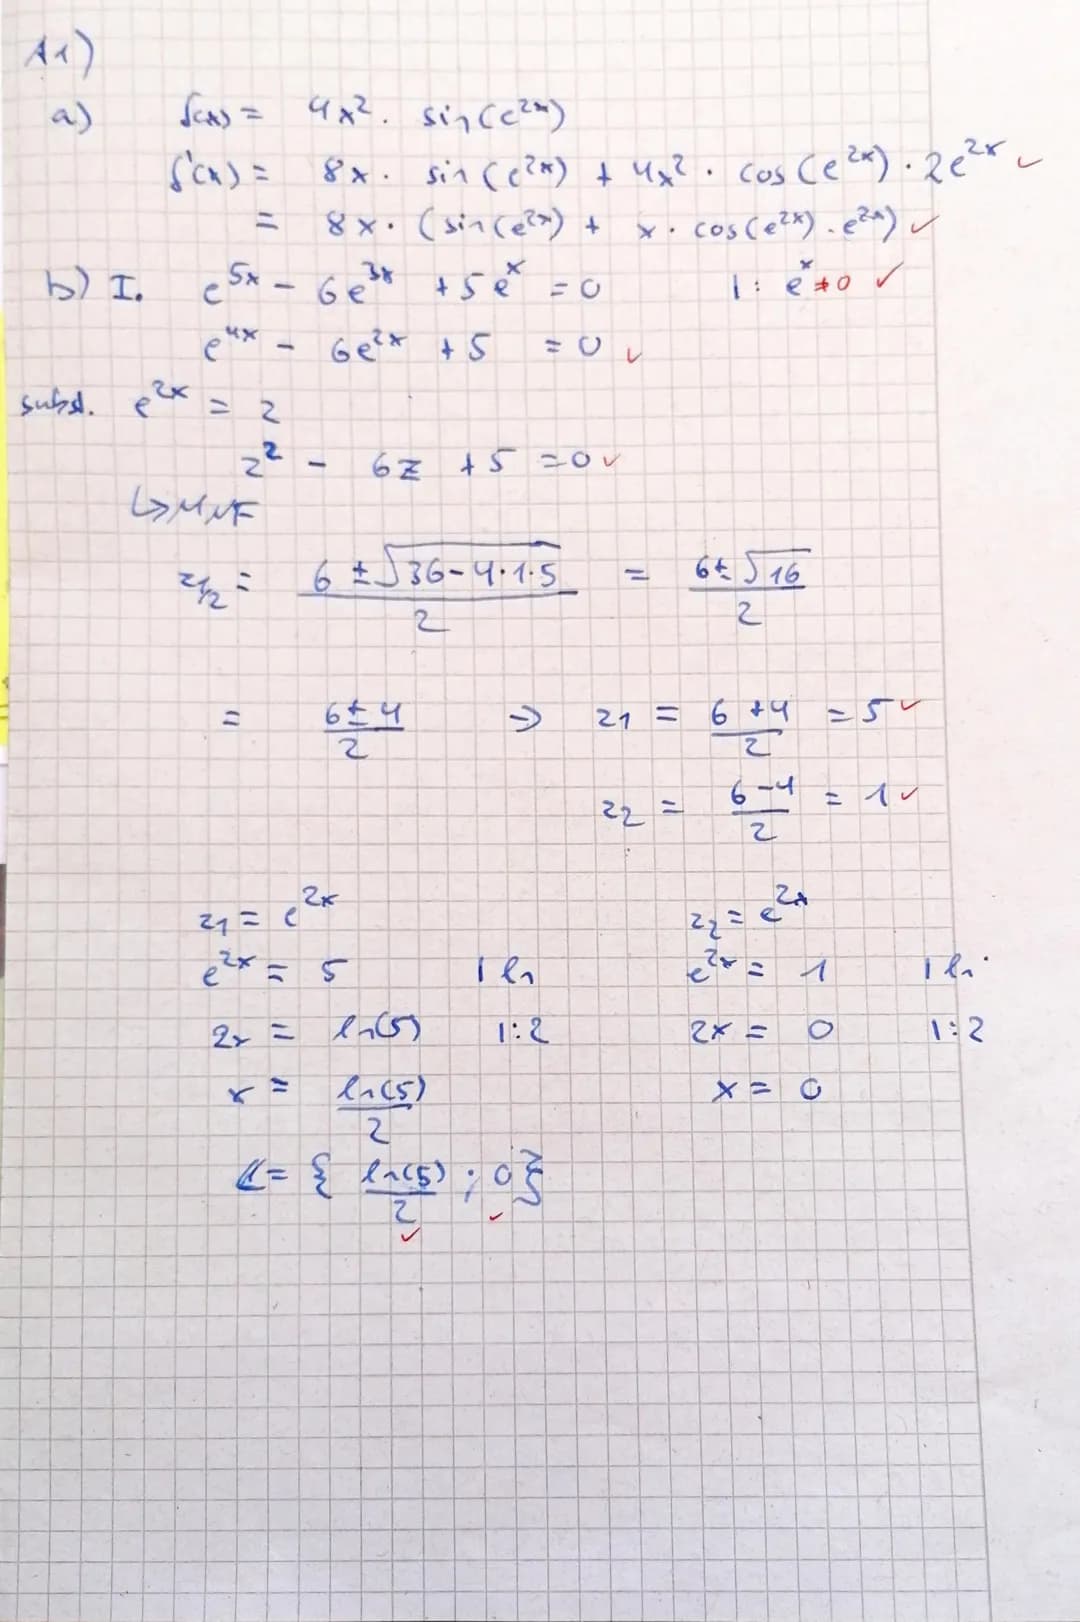 A1)
a) f(x) = 4x² · sin(e^{2x})
f'(x) = 8x · sin(e^{2x}) + 4x² · cos(e^{2x}) · 2e^{2x} ✓
= 8x · (sin(e^{2x}) + x · cos(e^{2x}) · e^{2x}) ✓
b) I. e^{5x} - 6e^{3x} + 5e^{x} = 0 | : e^{x} ≠0 ✓
e^{4x} - 6e^{2x} + 5 = 0 ✓
subst. e^{2x} = z
z² - 6z + 5 = 0 ✓
↳ MNF
z_{1/2} = (6 ± √(36-4·1·5))/2 = (6 ± √16)/2
= (6 ± 4)/2 → z1 = (6+4)/2 = 5 ✓
z2 = (6-4)/2 = 1 ✓
z1 = e^{2x} z2 = e^{2x}
e^{2x} = 5 | ln e^{2x} = 1 | ln
2x = ln(5) | :2 2x = 0 | :2
x = ln(5)/2 x = 0
L = { ln(5)/2 ✓ ; 0 ✓ }